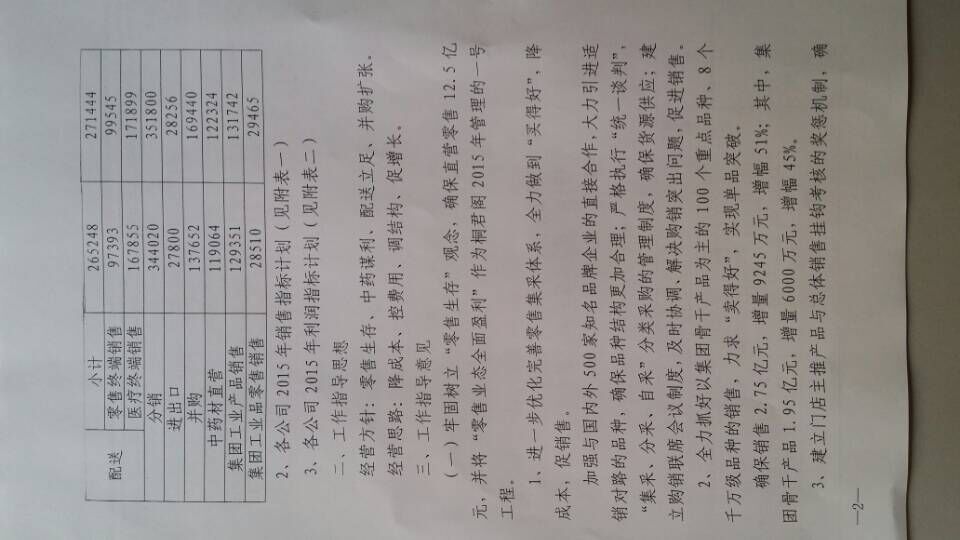 配送 小计 265248 271444
零售终端销售 97393 99545
医疗终端销售 167855 171899
分销 344020 351800
进出口 27800 28256
并购 137652 169440
中药材直营 119064 122324
集团工业产品销售 129351 131742
集团工业品零售销售 28510 29465
2、各公司2015年销售指标计划（见附表一）
3、各公司2015年利润指标计划（见附表二）
二、工作指导思想
经营方针：零售生存、中药谋利、配送立足、并购扩张。
经营思路：降成本、控费用、调结构、促增长。
三、工作指导意见
（一）牢固树立“零售生存”观念，确保直营零售12.5亿
元，并将“零售业态全面盈利”作为桐君阁2015年管理的一号
工程。
1、进一步优化完善零售集采体系，全力做到“买得好”，降
成本，促销售。
加强与国内外500家知名品牌企业的直接合作，大力引进适
销对路的品种，确保品种结构更加合理；严格执行“统一谈判”，
“集采、分采、自采”分类采购的管理制度，确保货源供应；建
立购销联席会议制度，及时协调、解决购销突出问题，促进销售。
2、全力抓好以集团骨干产品为主的100个重点品种、8个
千万级品种的销售，力求“卖得好”，实现单品突破。
确保销售2.75亿元，增量9245万元，增幅51%；其中，集
团骨干产品1.95亿元，增量6000万元，增幅45%。
3、建立门店主推产品与总体销售挂钩考核的奖惩机制，确
—2—